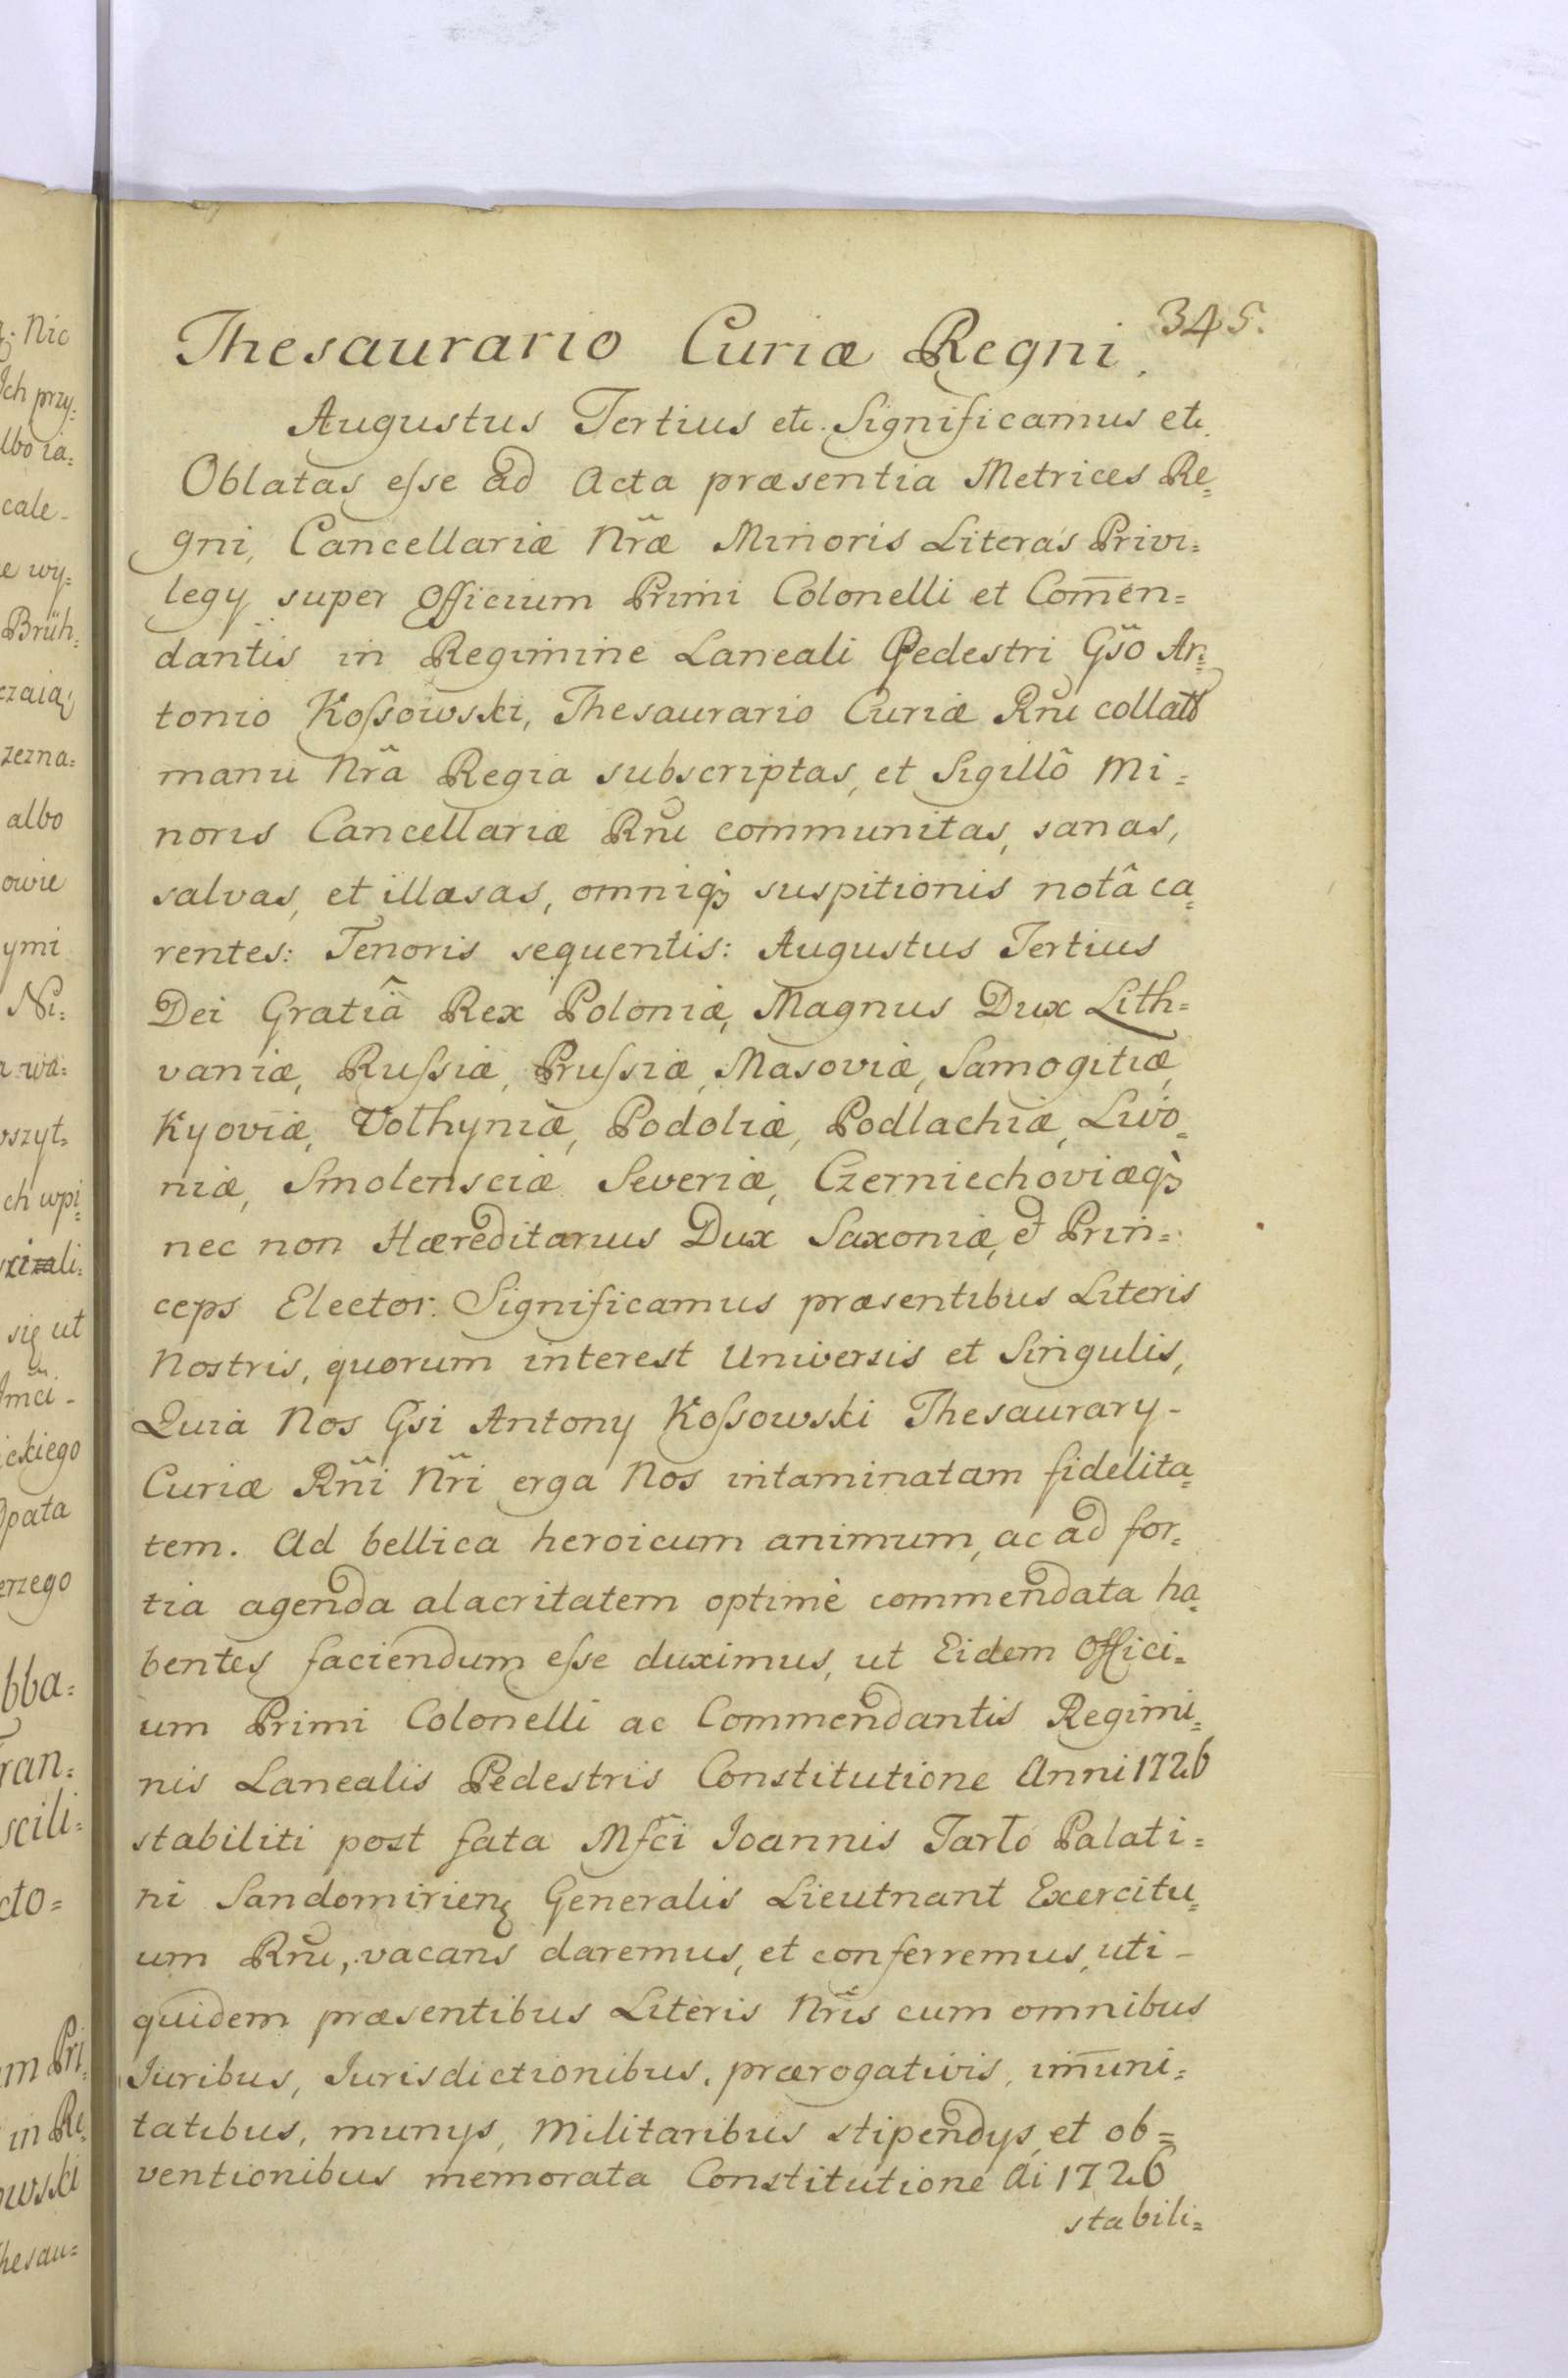 345.
Thesaurario Curiæ Regni.
Augustus Tertius etc. Significamus etc.
Oblatas eſse ad Acta præsentia Metrices Re=
gni, Cancellariæ Nr̃æ Minoris Literas Privi=
legy super Officium Primi Colonelli et Com̅en=
dantis in Regimine Laneali Pedestri Gs̃o An=
tonio Koſsowski, Thesaurario Curiæ Rñi collato
manu Nr̃a Regia subscriptas, et Sigillô Mi=
noris Cancellariæ Rñi communitas, sanas,
salvas, et illæsas, omniqȝ suspitionis notâ ca=
rentes: Tenoris sequentis: Augustus Tertius
Dei Gratiâ Rex Poloniæ, Magnus Dux Lith=
vaniæ, Ruſsiæ, Pruſsiæ, Masoviæ, Samogitiæ,
Kyoviæ, Volhyniæ, Podoliæ, Podlachiæ, Livo=
niæ, Smolensciæ Severiæ, Czerniechoviæqȝ
nec non Hæreditarius Dux Saxoniæ, et Prin=
ceps Elector. Significamus præsentibus Literis
Nostris, quorum interest Universis et Singulis,
Quia Nos Gsi Antony Koſsowski Thesaurary-
Curiæ Rñi Nr̃i erga Nos intaminatam fidelita=
tem. Ad bellica heroicum animum, ac ad for=
tia agenda alacritatem optimè commendata ha=
bentes faciendum eſse duximus, ut Eidem Offici=
um Primi Colonelli ac Commendantis Regimi=
nis Lanealis Pedestris Constitutione Anni 1726
stabiliti post fata Mfc̃i Ioannis Tarło Palati=
ni Sandomirienȝ Generalis Lieutnant Exercitu=
um Rñi, vacans daremus, et conferremus, uti-
quidem præsentibus Literis Nr̃is cum omnibus
Iuribus, Iurisdictionibus, prærogativis, im̅uni=
tatibus, munys, Militaribus stipendys, et ob=
ventionibus memorata Constitutione Ai 1726
stabili=